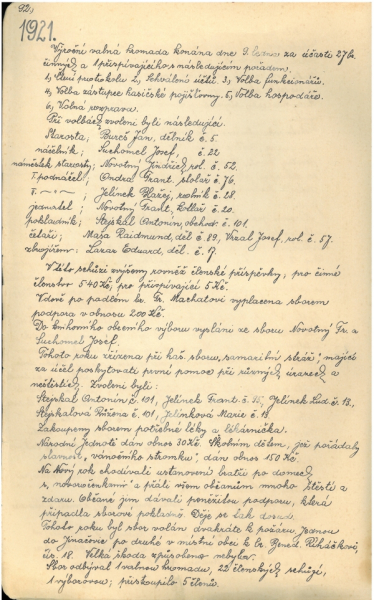 92.
1921.
Výroční valná hromada konána dne 9. ledna za účasti 27 br.
činných a 1 přispívajícího s následujícím pořadem.
1, Čtení protokolu 2, Schválení účtů 3, Volba funkcionářů.
4, Volba zástupce hasičské pojišťovny. 5, Volba hospodáře.
6, Volná rozprava.
Při volbách zvoleni byli následující:
Starosta; Bureš Jan, dělník č. 5.
náčelník; Suchomel Josef, č. 22
náměstek starosty; Novotný Jindřich, rol. č. 52,
I. podnáčel; Ondra Frant. stolař č. 76,
II. — " — ; Jelínek Blažej, rolník č. 28.
jednatel; Novotný Frant, kolář č. 20.
pokladník; Stejskal Antonín, obchod. č. 101.
četáři; Máša Raidmund, děl. č. 89, Vrzal Josef, rol. č. 57.
zbrojíř; Lazar Eduard, děl. č. 7.
V této schůzi zvýšeny rovněž členské příspěvky, pro činné
členstvo 5 40 Kč, pro přispívající 5 Kč.
Vdově po padlém br. Fr. Machatovi vyplacena sborem
podpora v obnosu 200 Kč.
Do knihovního obecního výboru vysláni ze sboru Novotný Fr. a
Suchomel Josef.
Tohoto roku zřízena při has. sboru „samaritní stráž", mající
za účel poskytovati první pomoc při různých úrazech a
neštěstích. Zvoleni byli:
Stejskal Antonín č. 101, Jelínek Frant. č. 75, Jelínek Lud. č. 13.,
Stejskalová Růžena č. 101, Jelínková Marie č. 13.
Zakoupeny sborem potřebné léky a lékárnička.
Národní Jednotě dán obnos 30 Kč. Školním dětem, jež pořádaly
slavnost „vánočního stromku", dán obnos 150 Kč
Na Nový rok chodívali ustanovení bratři po domech
s „novoročenkami" a přáli všem občanům mnoho štěstí a
zdaru. Občané jim dávali peněžitou podporu, která
připadla sborové pokladně. Děje se tak dosud.
Tohoto roku byl sbor volán dvakráte k požáru, jednou
do Jinačovic po druhé v místní obci k br. Bened.
čís. 18. Velká škoda způsobena nebyla.
Sbor odbýval 1 valnou hromadu, 22 členských schůzí,
1 výborovou; přistoupilo 5 členů.